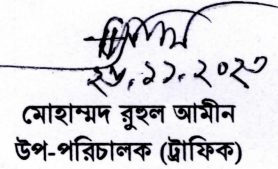 ২৮.১১.২০২৩
মোহাম্মদ রুহুল আমীন
উপ-পরিচালক (ট্রাফিক)